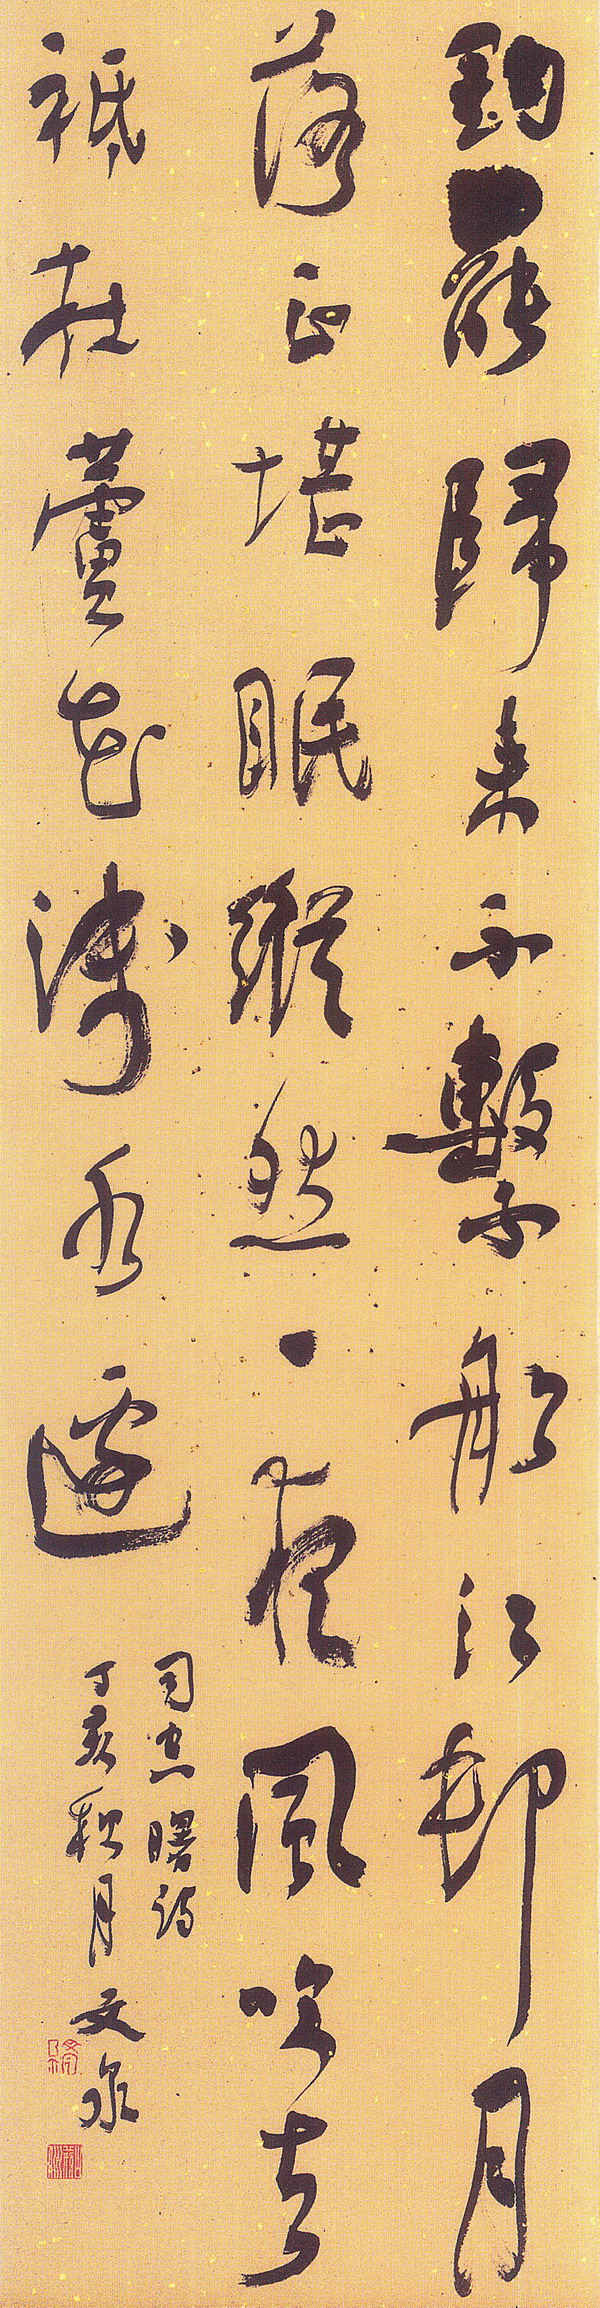 釣罷歸來不繫船江邨月
落正堪眠縱然一夜風吹去
祗在蘆花淺水邊
司空曙詩
丁亥秋月文泉